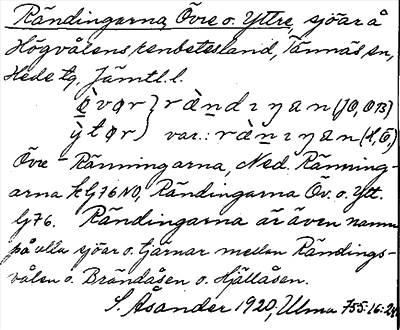 Rändingarna, Övre o. Yttre, sjöar å
Högvålens renbetesland, Tännäs sn,
Hede tg, Jämtl. l.
ø̀vər } rὰndɪŋan (JÖ, ÖB)
ỳtər } var.: rὰnɪŋan
Övre - Ränningarna, Ned. Ränning-
arna kG76NO, Rändingarna Öv. o. Ytt.
lg76. Rändingarna är även namn
på alla sjöar o. tjärnar mellan Rändings-
vålen o. Brändåsen o. Hjällåsen.
S. Åsander 1920, Ulma 755:16: